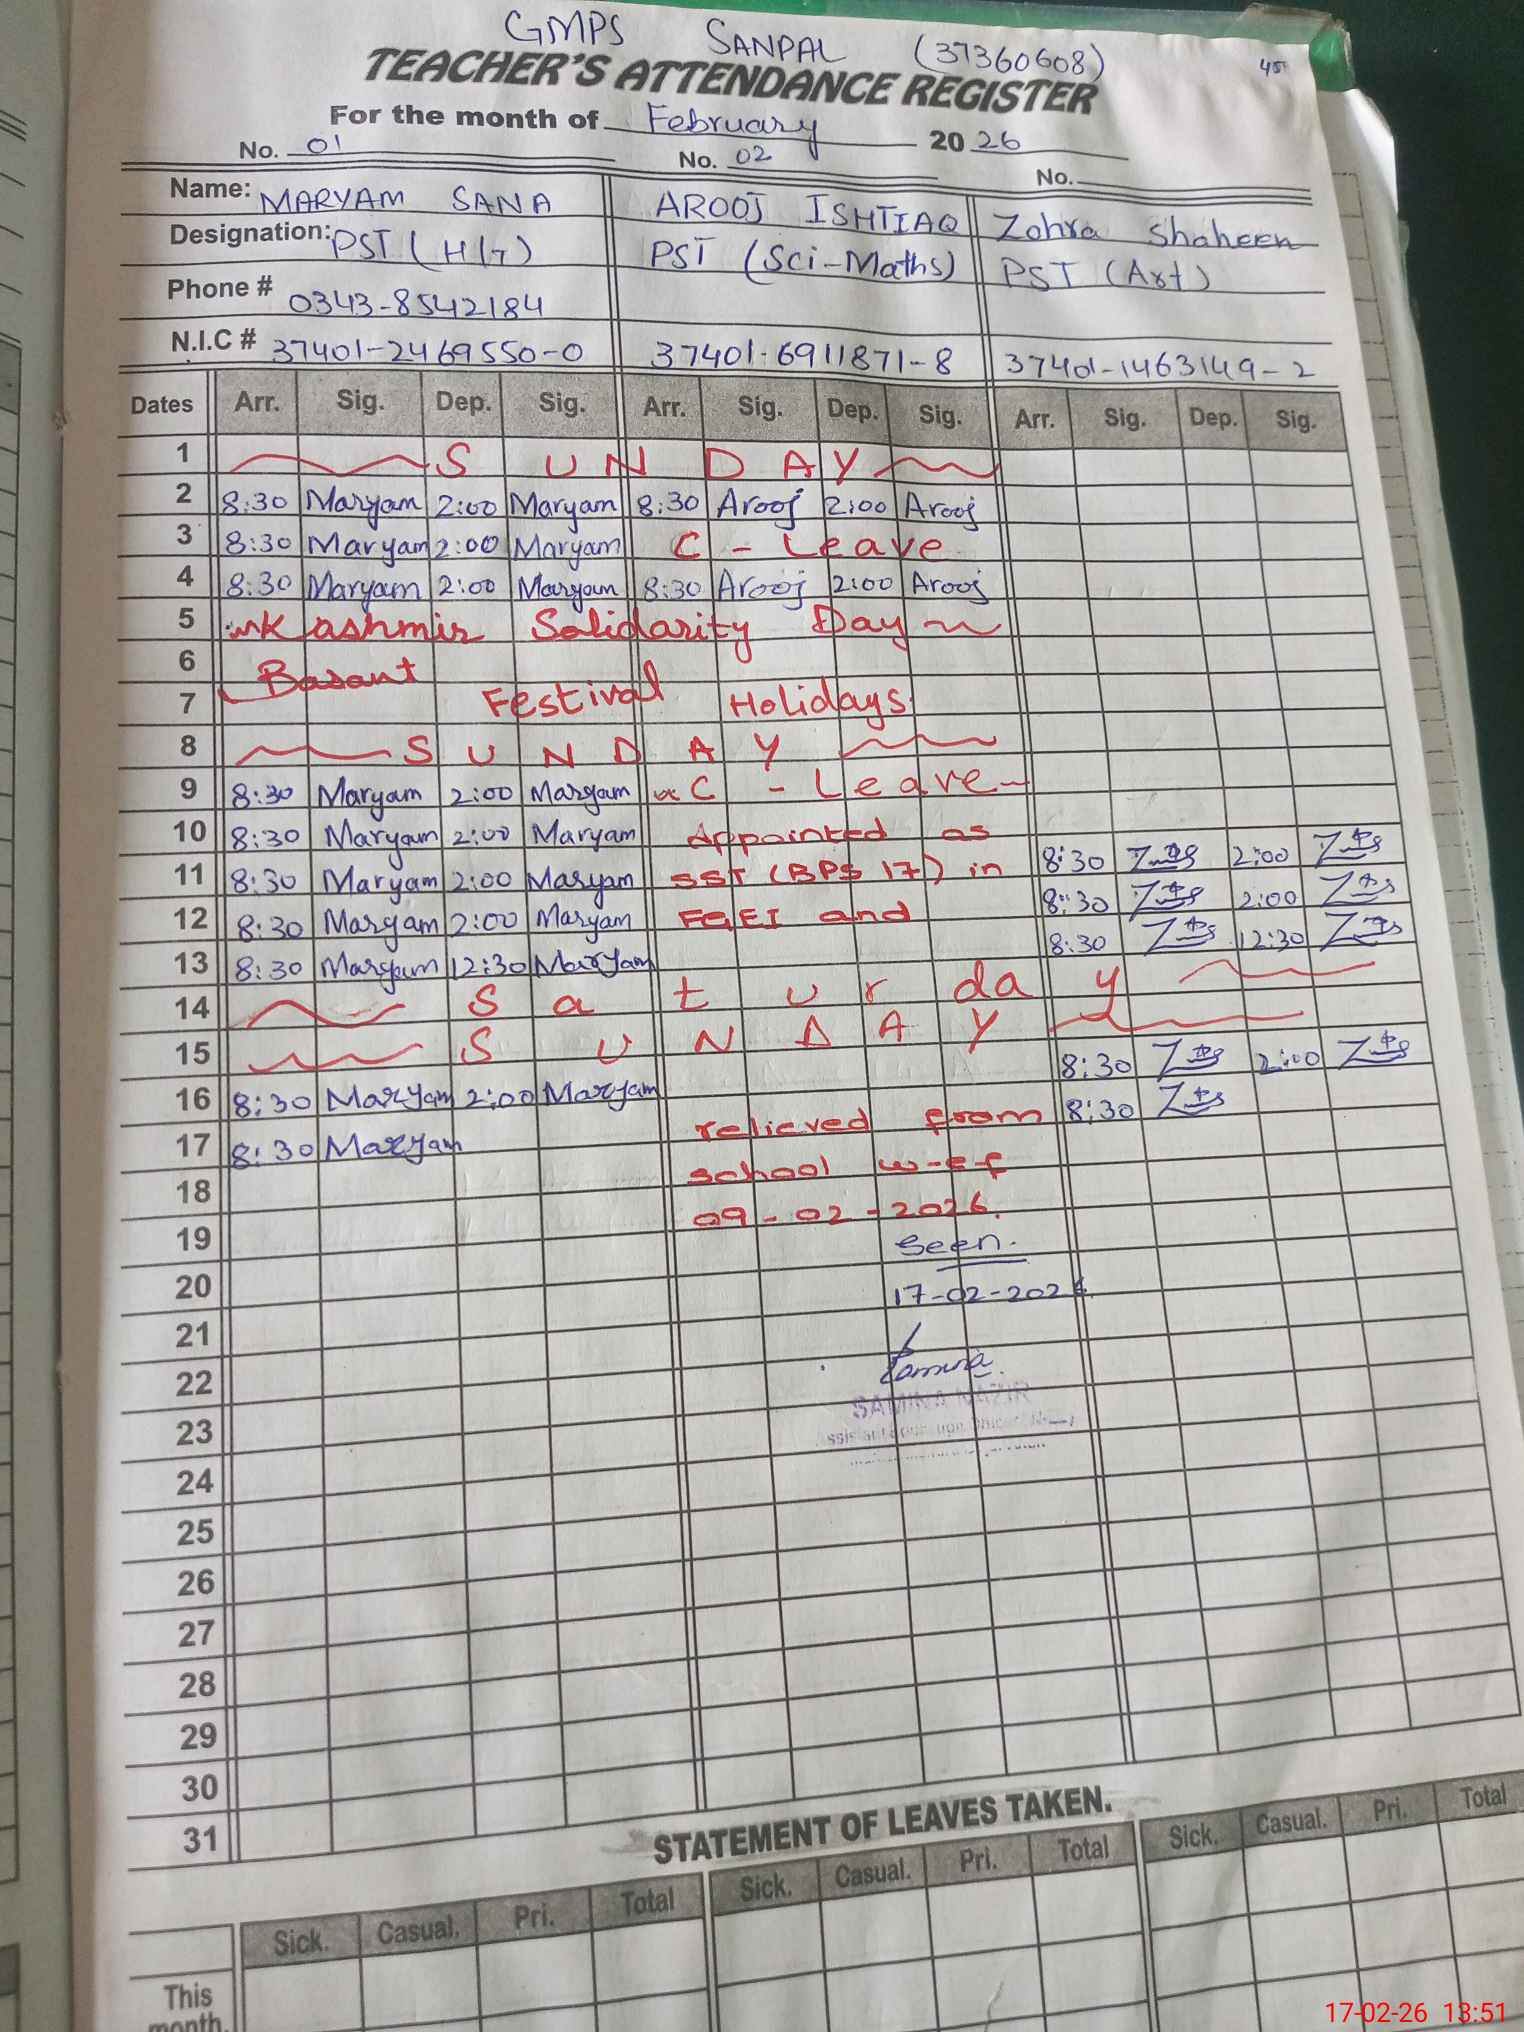 GMPS SANPAL (37360608)
45
TEACHER'S ATTENDANCE REGISTER
For the month of February 2026
No. 01 No. 02 No.
Name: MARYAM SANA AROOJ ISHTIAQ Zohra Shaheen
Designation: PST (H/T) PST (Sci-Maths) PST (Art)
Phone # 0343-8542184
N.I.C # 37401-2469550-0 37401-6911871-8 37401-1463149-2
Dates Arr. Sig. Dep. Sig. Arr. Sig. Dep. Sig. Arr. Sig. Dep. Sig.
1 SUNDAY
2 8:30 Maryam 2:00 Maryam 8:30 Arooj 2:00 Arooj
3 8:30 Maryam 2:00 Maryam C - Leave
4 8:30 Maryam 2:00 Maryam 8:30 Arooj 2:00 Arooj
5 Kashmir Solidarity Day
6 Basant
7 Festival Holidays
8 SUNDAY
9 8:30 Maryam 2:00 Maryam C - Leave
10 8:30 Maryam 2:00 Maryam Appointed as 8:30 2:00
11 8:30 Maryam 2:00 Maryam SST (BPS 17) in 8:30 2:00
12 8:30 Maryam 2:00 Maryam FGEI and 8:30 12:30
13 8:30 Maryam 12:30 Maryam
14 Saturday
15 SUNDAY
16 8:30 Maryam 2:00 Maryam 8:30 2:00
17 8:30 Maryam relieved from 8:30
18 school w-e-f
19 09-02-2026.
Seen.
20 17-02-2026
21
22
SAMINA NAZIR
23
24
25
26
27
28
29
30
31
STATEMENT OF LEAVES TAKEN.
Sick. Casual. Pri. Total Sick. Casual. Pri. Total Sick. Casual. Pri. Total
This
month.
17-02-26 13:51